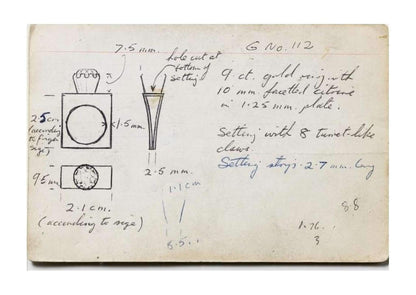 7.5 mm.
hole cut at
bottom of
setting
G No. 112
9 ct. gold ring with
10 mm facetted citrine
in 1.25 mm. plate.
Setting with 8 turret-like
claws.
Setting strips 2.7 mm. long
2.5cm
(according
to finger
size)
1.5 mm.
9.5mm
2.5 mm.
1.1 cm
2.1 cm.
(according to size)
8.8
1.76
3